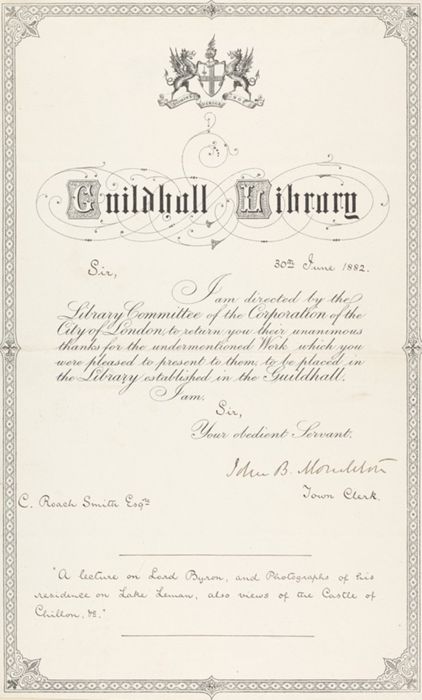 DOMINE DIRIGE NOS
Guildhall Library
Sir, 30th June 1882.
I am directed by the
Library Committee of the Corporation of the
City of London, to return you their unanimous
thanks for the undermentioned Work which you
were pleased to present to them, to be placed in
the Library established in the Guildhall.
I am,
Sir,
Your obedient Servant.
John B. Monckton
Town Clerk.
C. Roach Smith Esqre
"A lecture on Lord Byron, and Photographs of his
residence on Lake Leman, also views of the Castle of
Chillon, &c."